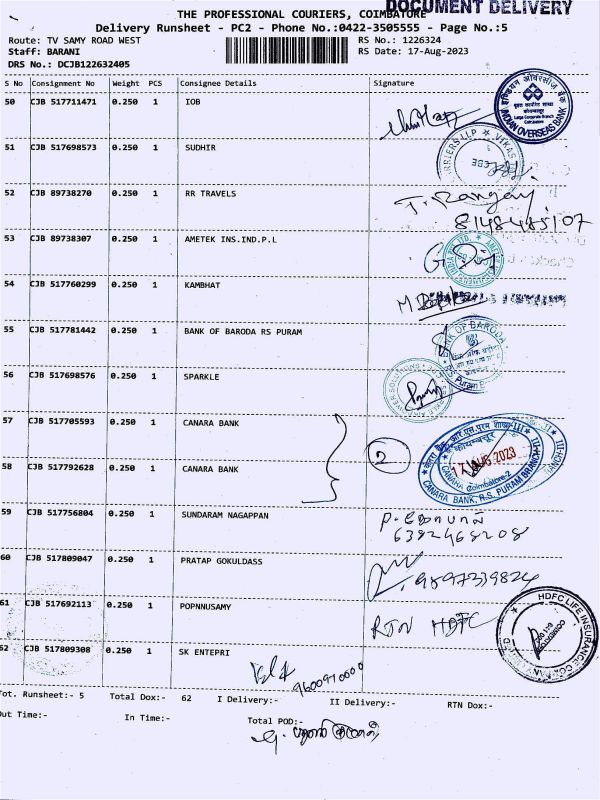 DOCUMENT DELIVERY
THE PROFESSIONAL COURIERS, COIMBATORE
Delivery Runsheet - PC2 - Phone No.:0422-3505555 - Page No.:5
Route: TV SAMY ROAD WEST RS No.: 1226324
Staff: BARANI RS Date: 17-Aug-2023
DRS No.: DCJB122632405
S No Consignment No Weight PCS Consignee Details Signature
50 CJB 517711471 0.250 1 IOB
INDIAN OVERSEAS BANK
51 CJB 517698573 0.250 1 SUDHIR
52 CJB 89738270 0.250 1 RR TRAVELS T. Rangaj
8148485107
53 CJB 89738307 0.250 1 AMETEK INS.IND.P.L
54 CJB 517760299 0.250 1 KAMBHAT
55 CJB 517781442 0.250 1 BANK OF BARODA RS PURAM
BANK OF BARODA
56 CJB 517698576 0.250 1 SPARKLE
57 CJB 517705593 0.250 1 CANARA BANK
2
17 AUG 2023
Coimbatore-2
CANARA BANK, R.S. PURAM BRANCH-III
58 CJB 517792628 0.250 1 CANARA BANK
59 CJB 517756804 0.250 1 SUNDARAM NAGAPPAN
6382468208
60 CJB 517809047 0.250 1 PRATAP GOKULDASS
9897339824
61 CJB 517692113 0.250 1 POPNNUSAMY RTN HDFC
HDFC LIFE INSURANCE COMPAN
62 CJB 517809308 0.250 1 SK ENTEPRI
9600970000
Tot. Runsheet:- 5 Total Dox:- 62 I Delivery:- II Delivery:- RTN Dox:-
Out Time:- In Time:- Total POD:-